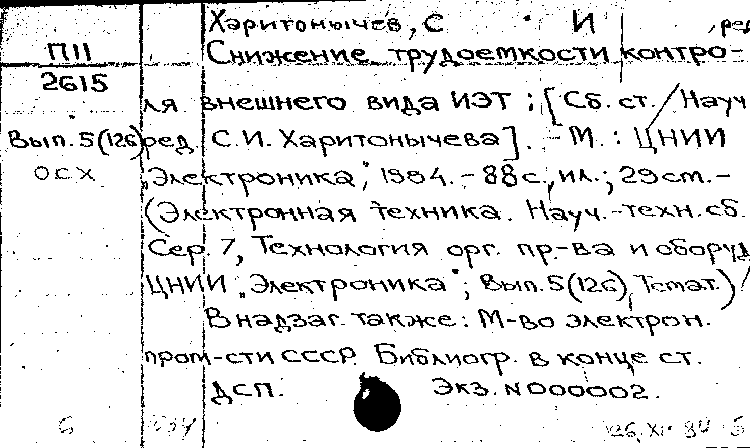 Харитонычев, С И , ред
П11 Снижение трудоемкости контро-
2615
ля внешнего вида ИЭТ : [Сб. ст. / Науч
Вып. 5(126) ред. С.И. Харитонычева]. - М. : ЦНИИ
ОСХ „Электроника“, 1984. - 88 с., ил.; 29 см. -
(Электронная техника. Науч.-техн. сб.
Сер. 7, Технология орг. пр-ва и оборуд
ЦНИИ „Электроника“; Вып. 5(126)
В надзаг. также: М-во электрон.
пром-сти СССР. Библиогр. в конце ст.
ДСП. Экз. N000002.